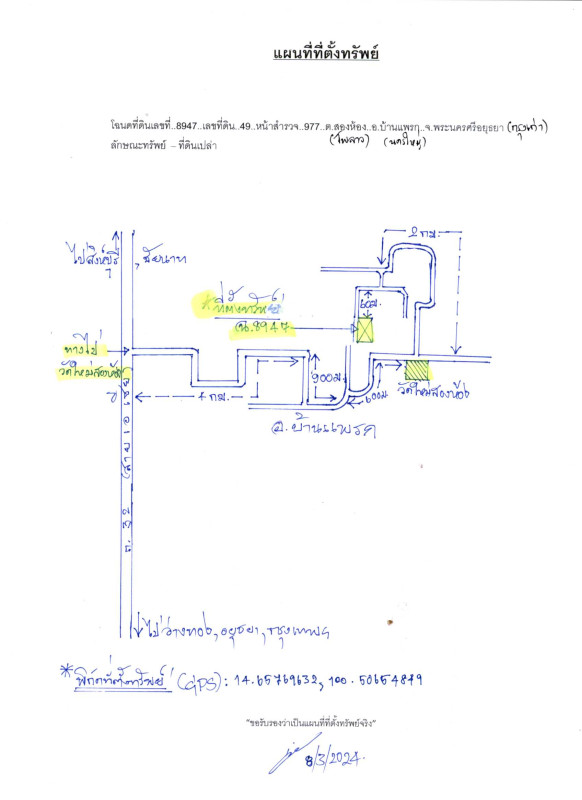 แผนที่ที่ตั้งทรัพย์
โฉนดที่ดินเลขที่..8947..เลขที่ดิน..49..หน้าสำรวจ..977..ต.สองห้อง..อ.บ้านแพรก..จ.พระนครศรีอยุธยา (กรุงเก่า)
ลักษณะทรัพย์ – ที่ดินเปล่า
(ไผ่ลาว) (นครใหญ่)
2 กม.
ไปสิงห์บุรี, ชัยนาท
60ม.
*ที่ตั้งทรัพย์
ฉ.8947
ทางไป
วัดใหม่สองห้อง
900ม
4 กม.
600ม
วัดใหม่สองห้อง
อ.บ้านแพรก
ถ.32 (สายเอเซีย)
ไปอ่างทอง, อยุธยา, กรุงเทพฯ
*พิกัดที่ตั้งทรัพย์ (GPS): 14.65769632, 100.50654849
"ขอรับรองว่าเป็นแผนที่ที่ตั้งทรัพย์จริง"
8/3/2024.